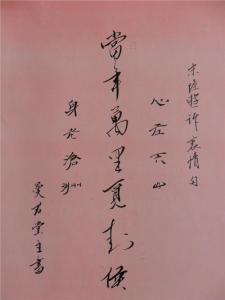 宋陸游訴衷情句
心在天山
當年萬里覓封侯
身老滄洲
堂主書